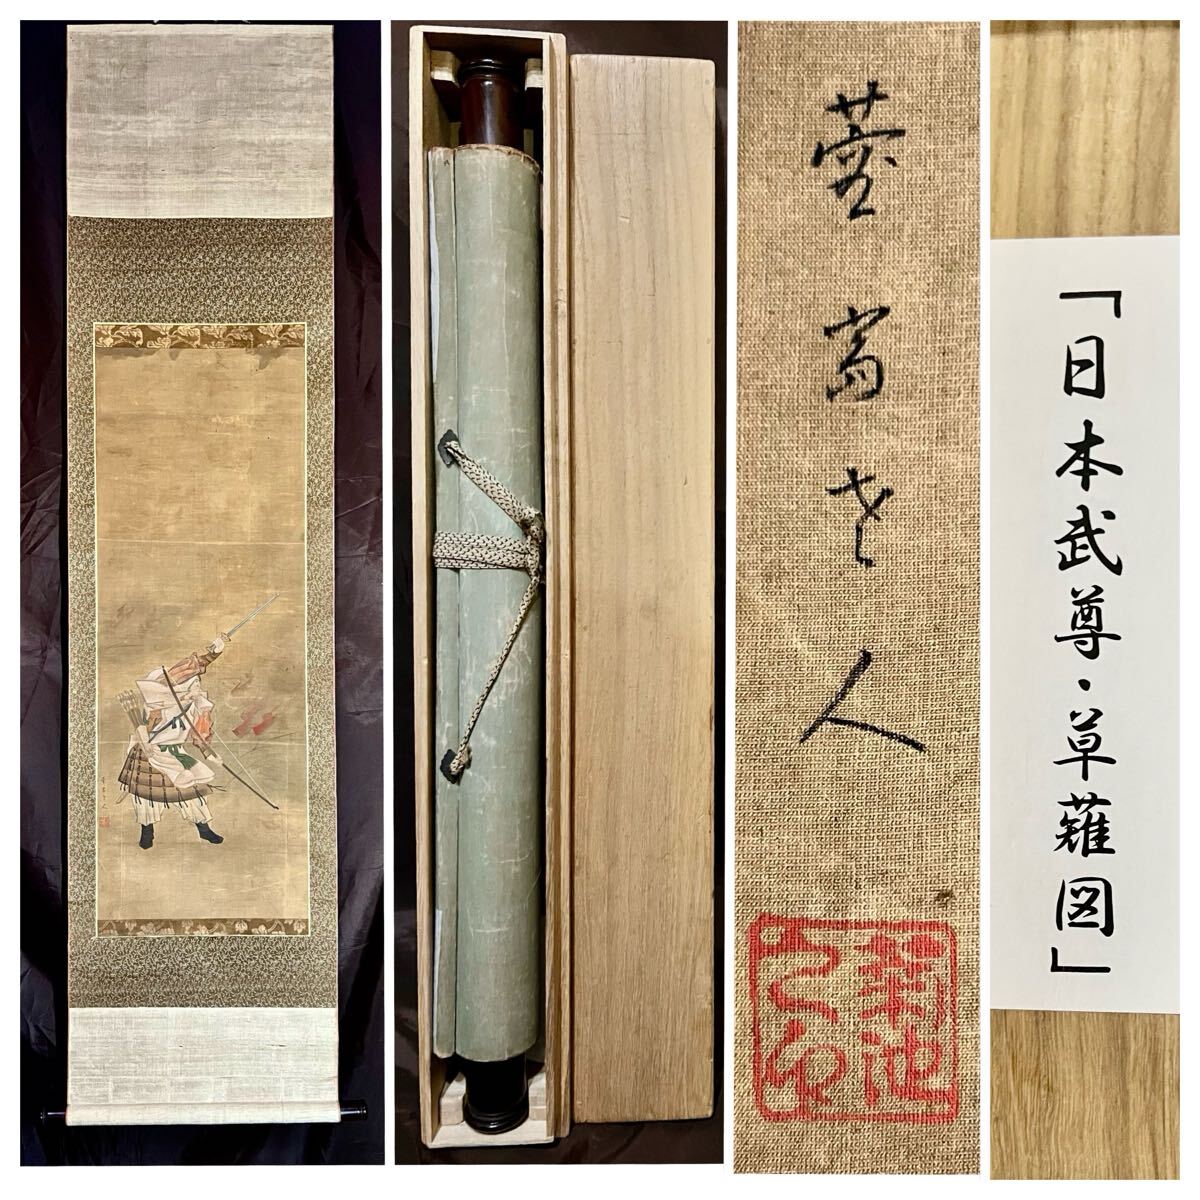 斎老人
菊池
「日本武尊・草薙図」